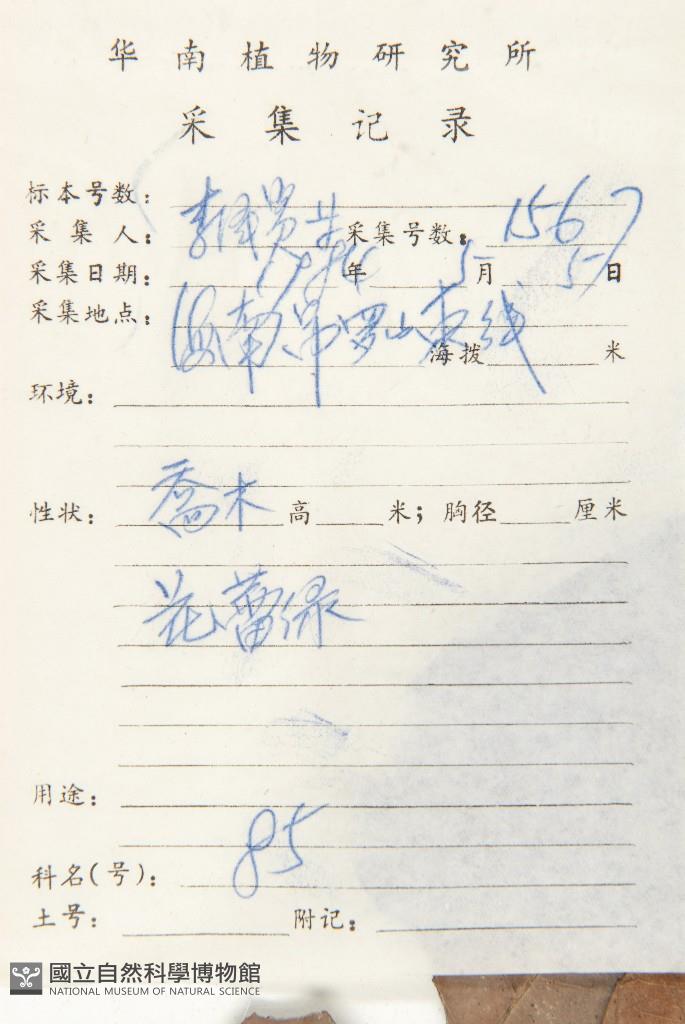 华南植物研究所
采集记录
标本号数：
采集人：李泽贤 采集号数：1567
采集日期： 年 5 月 5 日
采集地点：海南吊罗山东线
海拨 米
环境：
性状：喬木 高 米；胸径 厘米
花蕾绿
用途：
科名(号)：85
土号： 附记：
國立自然科學博物館
NATIONAL MUSEUM OF NATURAL SCIENCE